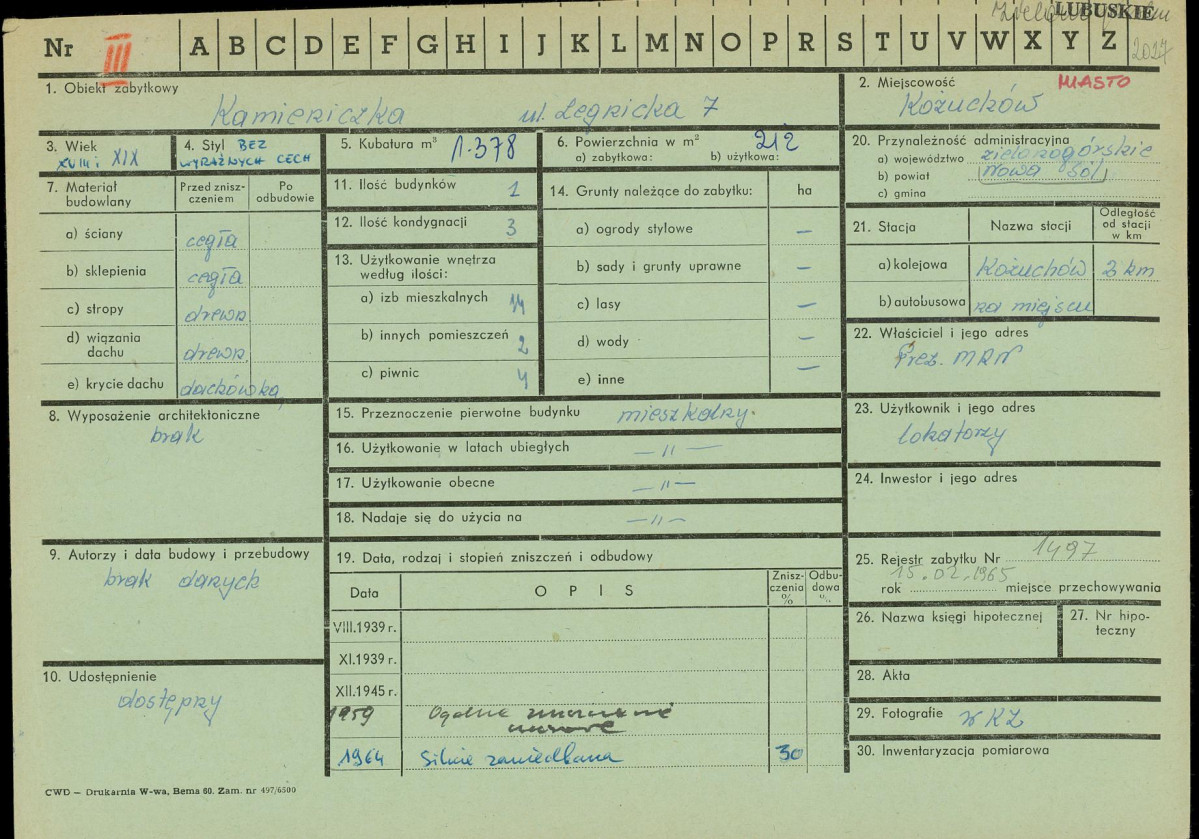 LUBUSKIE
Nr III A B C D E F G H I J K L M N O P R S T U V W X Y Z 2027
1. Obiekt zabytkowy
Kamieniczka ul. Legnicka 7
2. Miejscowość MIASTO
Kożuchów
3. Wiek
XVIII i XIX
4. Styl BEZ
WYRAŹNYCH CECH
5. Kubatura m³ 1.378
6. Powierzchnia w m² 212
a) zabytkowa: b) użytkowa:
20. Przynależność administracyjna
a) województwo zielonogórskie
b) powiat Nowa Sól
c) gmina
7. Materiał budowlany
Przed zniszczeniem
Po odbudowie
a) ściany cegła
b) sklepienia cegła
c) stropy drewn.
d) wiązania dachu drewn.
e) krycie dachu dachówka
11. Ilość budynków 1
12. Ilość kondygnacji 3
13. Użytkowanie wnętrza
według ilości:
a) izb mieszkalnych 14
b) innych pomieszczeń 2
c) piwnic 4
14. Grunty należące do zabytku: ha
a) ogrody stylowe —
b) sady i grunty uprawne —
c) lasy —
d) wody —
e) inne —
21. Stacja Nazwa stacji Odległość od stacji w km
a) kolejowa Kożuchów 2 km
b) autobusowa na miejscu
22. Właściciel i jego adres
Prez. MRN
8. Wyposażenie architektoniczne
brak
15. Przeznaczenie pierwotne budynku mieszkalny.
16. Użytkowanie w latach ubiegłych — " —
17. Użytkowanie obecne — " —
18. Nadaje się do użycia na — " —
23. Użytkownik i jego adres
lokatorzy
24. Inwestor i jego adres
9. Autorzy i data budowy i przebudowy
brak danych
19. Data, rodzaj i stopień zniszczeń i odbudowy
Data OPIS Zniszczenia % Odbudowa %
VIII.1939 r.
XI.1939 r.
XII.1945 r.
1959 Ogólne
1964 Silnie zaniedbana 30
25. Rejestr zabytku Nr 1497
15.02.1965
rok miejsce przechowywania
26. Nazwa księgi hipotecznej
27. Nr hipoteczny
10. Udostępnienie
dostępny
28. Akta
29. Fotografie WKZ
30. Inwentaryzacja pomiarowa
CWD — Drukarnia W-wa, Bema 60. Zam. nr 497/6500